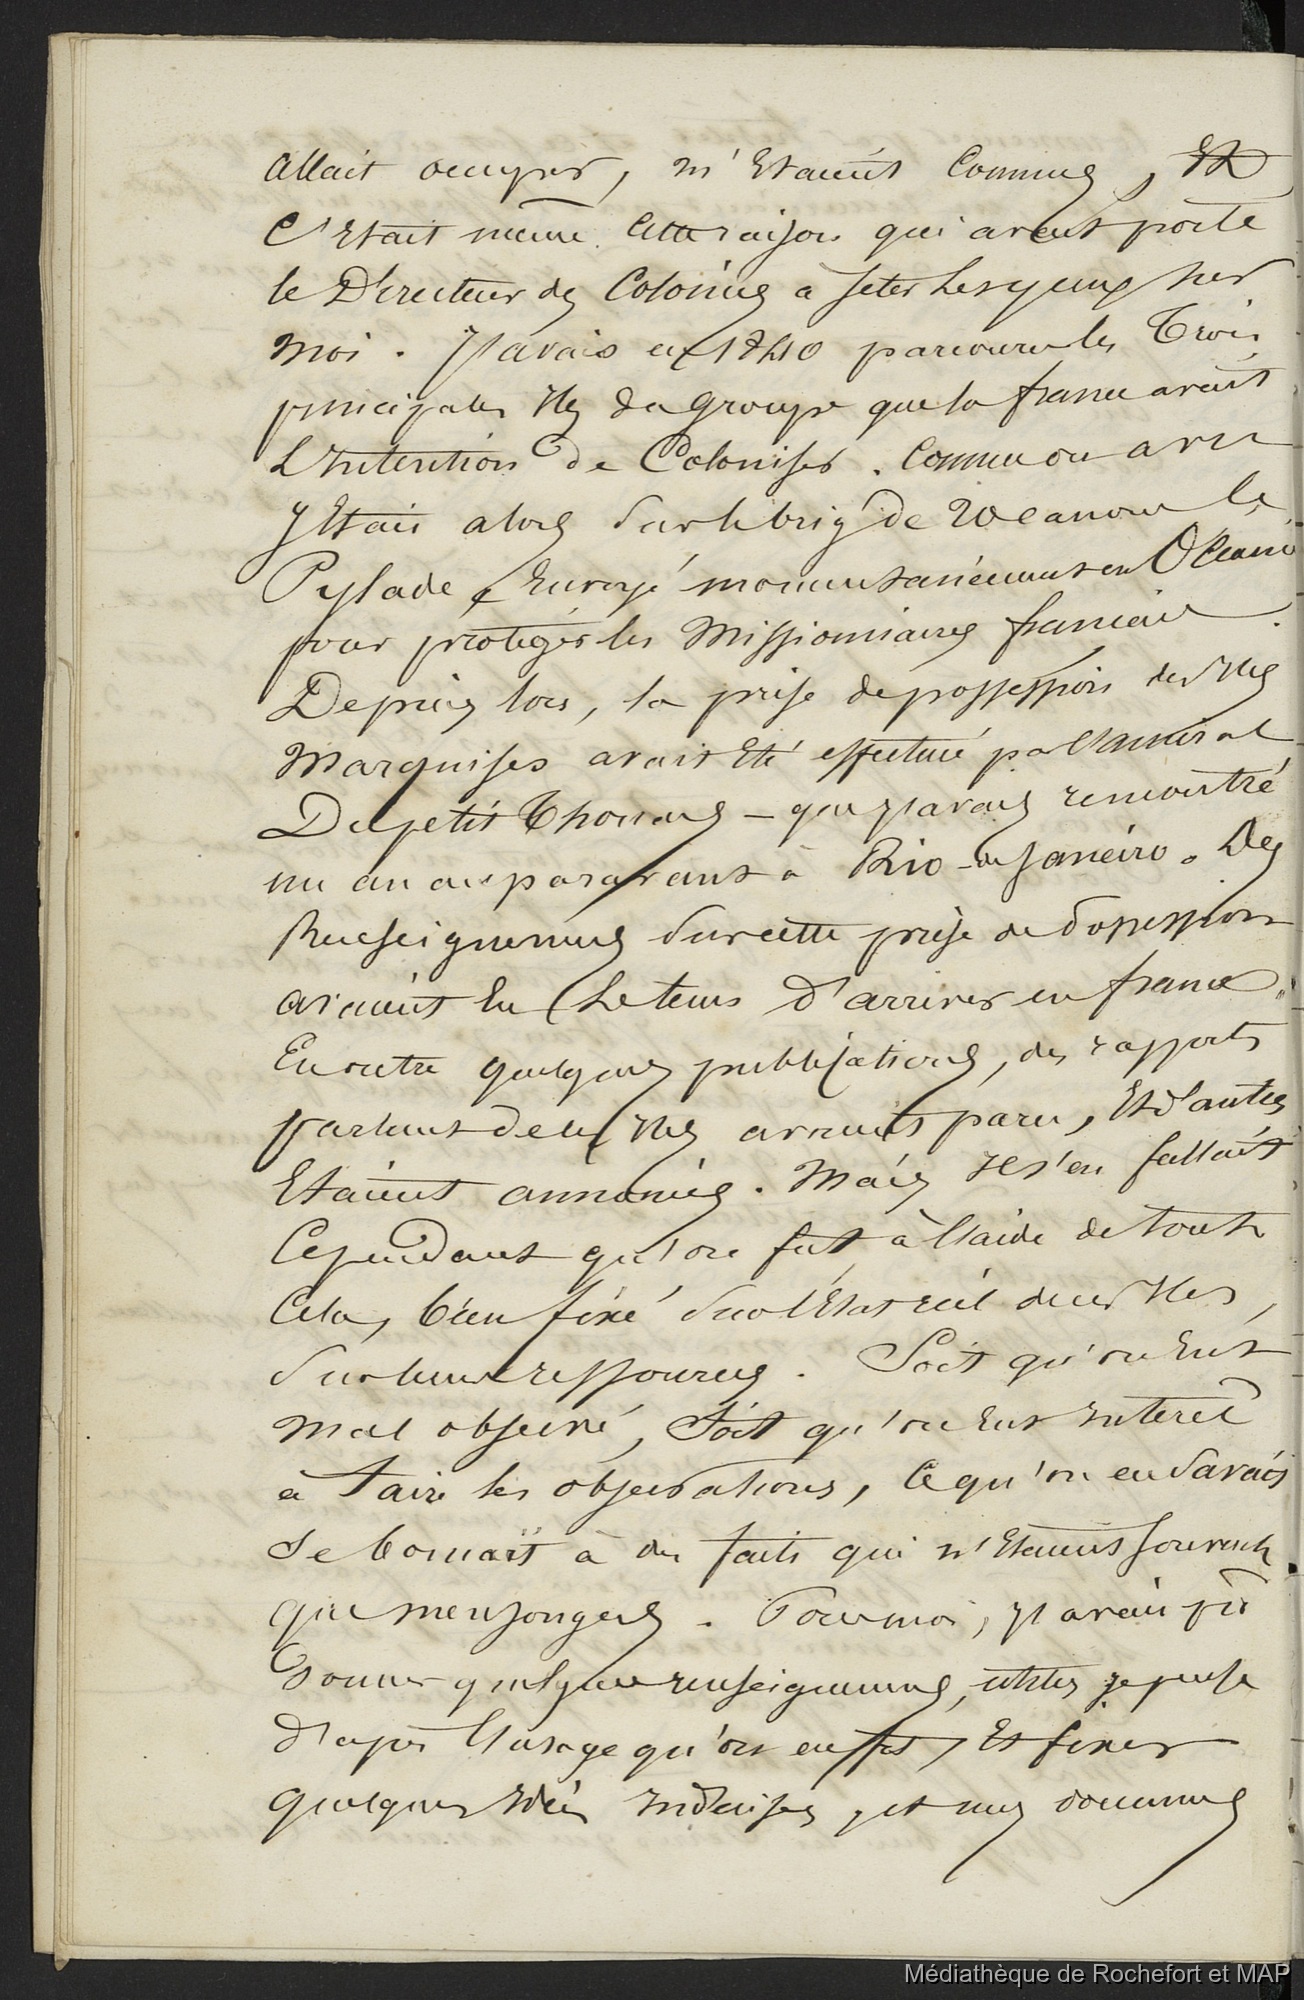 allait occuper, m'etaient connus, Et
c'etait même cette raison qui avait porté
le Directeur des Colonies a jeter les yeux sur
moi. J'avais en 1840 parcouru les Trois
principales Iles du groupe que la france avait
L'intention de Coloniser. Comme on a vu
J'Etais alors sur le brig de 20 canons le
Pylade, Envoyé momentanément en Oceanie
pour protéger les Missionnaires francais.
Depuis lors, la prise de possession des Iles
Marquises avait Eté effectuée par l'amiral
Dupetit Thouars – que j'avais rencontré
un an auparavant à Rio-de-Janeiro. Des
Renseignemens sur cette prise de possession
avaient Eu le tems d'arriver en france.
En outre quelques publications, des rapports
parlant de ces Iles avaient paru, Et d'autres
Etaient annoncés. Mais Il s'en fallait
Cependant qu'on fut à l'aide de tout
Cela, bien fixé sur l'Etat réel de ces Iles,
sur leurs ressources. Soit qu'on Eut
mal observé, Soit qu'on Eut interêt
à Taire les observations, ce qu'on en savait
se bornait à des faits qui n'Etaient souvent
que mensongers. Pour moi, j'avais pu
Donner quelques renseignemens, utiles je pense
d'après l'usage qu'on en fit, Et fixer
quelques Idées indécises, et mes documens
Médiathèque de Rochefort et MAP